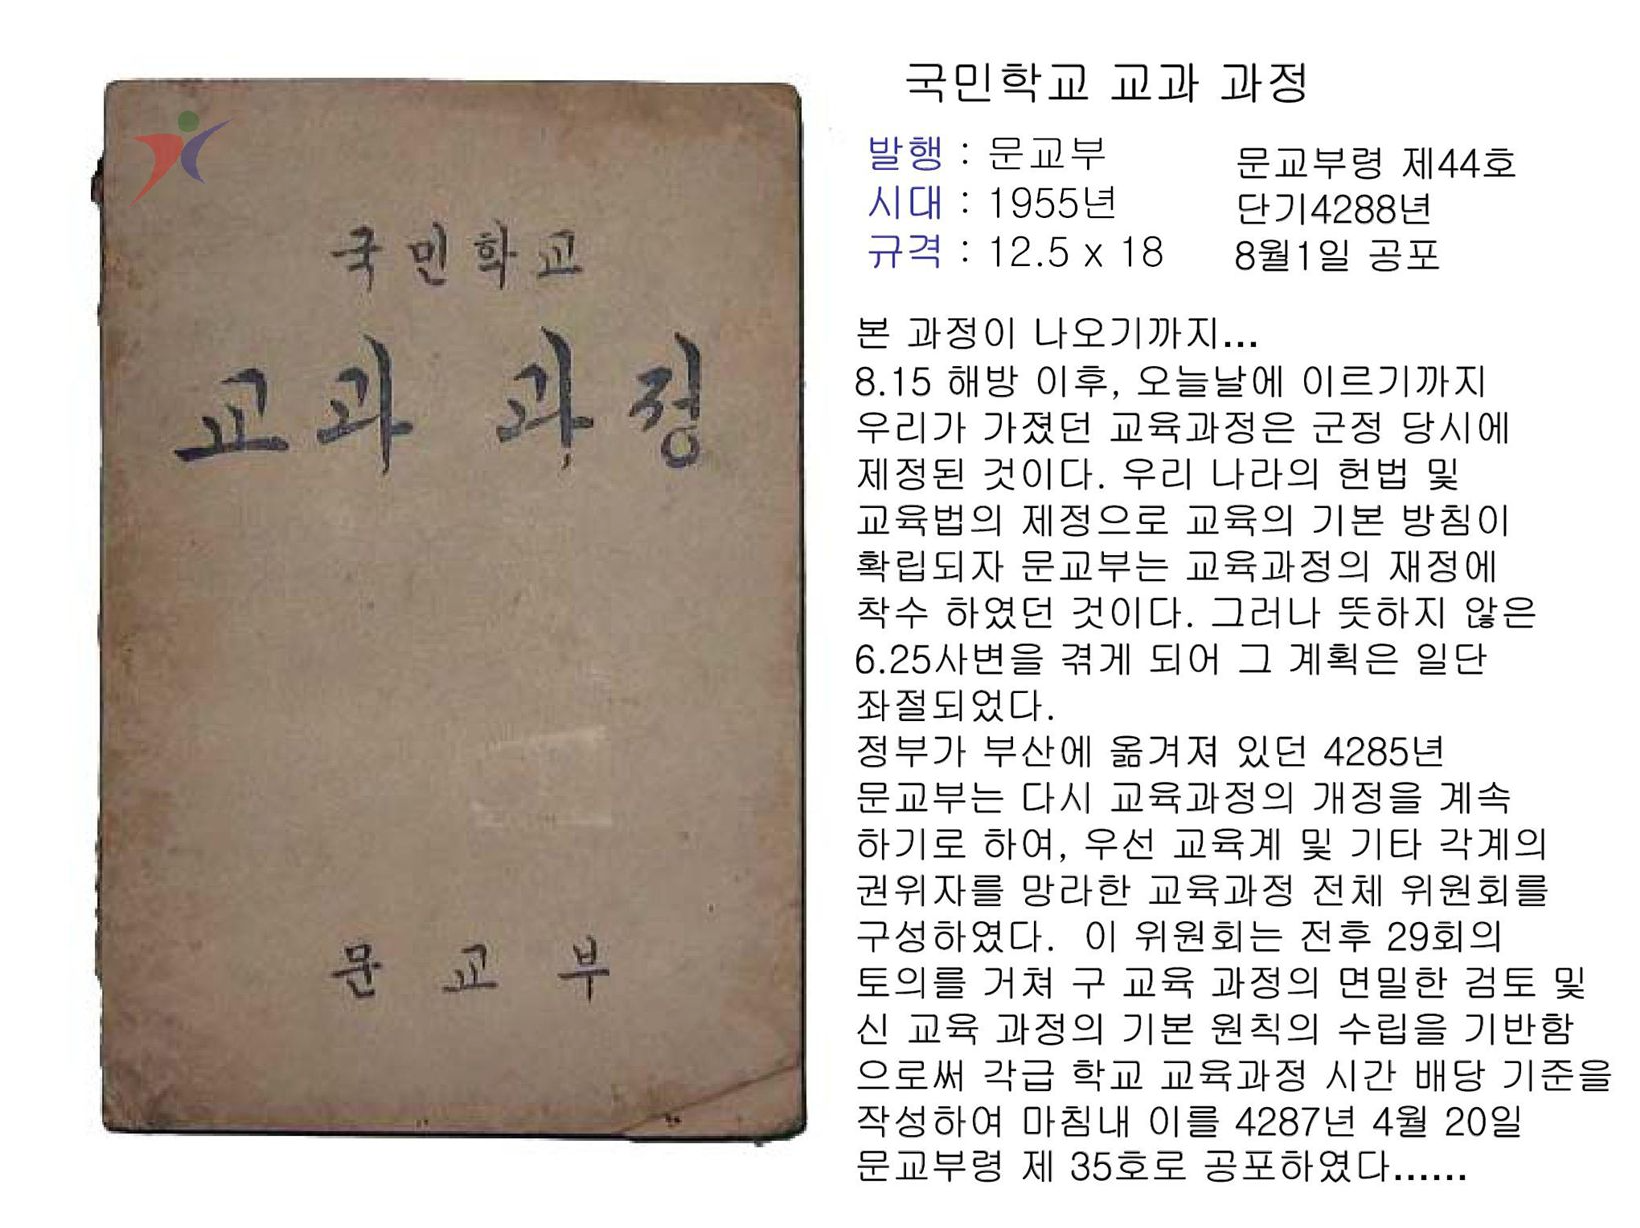 국민학교
교과 과정
문교부
국민학교 교과 과정
발행 : 문교부
시대 : 1955년
규격 : 12.5 x 18
문교부령 제44호
단기4288년
8월1일 공포
본 과정이 나오기까지...
8.15 해방 이후, 오늘날에 이르기까지
우리가 가졌던 교육과정은 군정 당시에
제정된 것이다. 우리 나라의 헌법 및
교육법의 제정으로 교육의 기본 방침이
확립되자 문교부는 교육과정의 재정에
착수 하였던 것이다. 그러나 뜻하지 않은
6.25사변을 겪게 되어 그 계획은 일단
좌절되었다.
정부가 부산에 옮겨져 있던 4285년
문교부는 다시 교육과정의 개정을 계속
하기로 하여, 우선 교육계 및 기타 각계의
권위자를 망라한 교육과정 전체 위원회를
구성하였다.  이 위원회는 전후 29회의
토의를 거쳐 구 교육 과정의 면밀한 검토 및
신 교육 과정의 기본 원칙의 수립을 기반함
으로써 각급 학교 교육과정 시간 배당 기준을
작성하여 마침내 이를 4287년 4월 20일
문교부령 제 35호로 공포하였다......